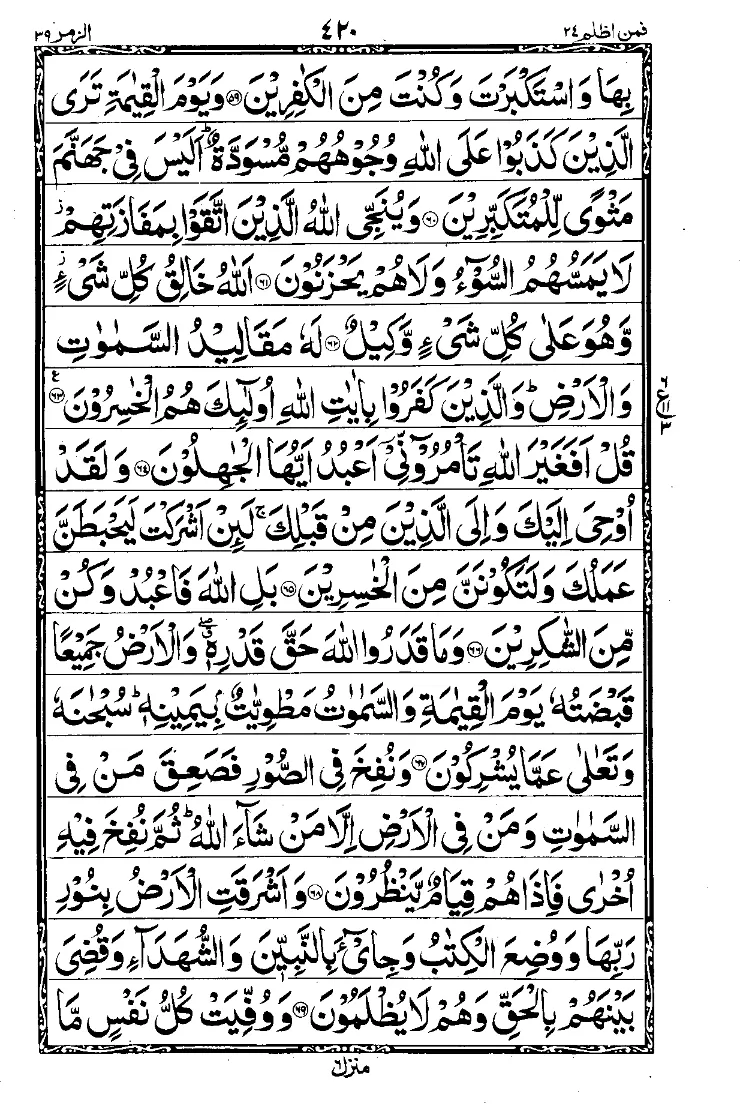 فمن اظلم ٢٤ ٤٢٠ الزمر ٣٩
بِهَا وَاسْتَكْبَرْتَ وَكُنْتَ مِنَ الْكٰفِرِيْنَ ﴿۵۹﴾ وَيَوْمَ الْقِيٰمَةِ تَرَى
الَّذِيْنَ كَذَبُوْا عَلَى اللّٰهِ وُجُوْهُهُمْ مُّسْوَدَّةٌ ؕ اَلَيْسَ فِيْ جَهَنَّمَ
مَثْوًى لِّلْمُتَكَبِّرِيْنَ ﴿۶۰﴾ وَيُنَجِّي اللّٰهُ الَّذِيْنَ اتَّقَوْا بِمَفَازَتِهِمْ ز
لَا يَمَسُّهُمُ السُّوْٓءُ وَلَا هُمْ يَحْزَنُوْنَ ﴿۶۱﴾ اَللّٰهُ خَالِقُ كُلِّ شَيْءٍ ز
وَّهُوَ عَلٰى كُلِّ شَيْءٍ وَّكِيْلٌ ﴿۶۲﴾ لَهٗ مَقَالِيْدُ السَّمٰوٰتِ
وَالْاَرْضِ ؕ وَالَّذِيْنَ كَفَرُوْا بِاٰيٰتِ اللّٰهِ اُولٰٓئِكَ هُمُ الْخٰسِرُوْنَ ﴿۶۳﴾ ع
٦ ع ١١ ٣
قُلْ اَفَغَيْرَ اللّٰهِ تَاْمُرُوْٓنِّيْٓ اَعْبُدُ اَيُّهَا الْجٰهِلُوْنَ ﴿۶۴﴾ وَلَقَدْ
اُوْحِيَ اِلَيْكَ وَاِلَى الَّذِيْنَ مِنْ قَبْلِكَ ۚ لَئِنْ اَشْرَكْتَ لَيَحْبَطَنَّ
عَمَلُكَ وَلَتَكُوْنَنَّ مِنَ الْخٰسِرِيْنَ ﴿۶۵﴾ بَلِ اللّٰهَ فَاعْبُدْ وَكُنْ
مِّنَ الشّٰكِرِيْنَ ﴿۶۶﴾ وَمَا قَدَرُوا اللّٰهَ حَقَّ قَدْرِهٖ ۖ وَالْاَرْضُ جَمِيْعًا
قَبْضَتُهٗ يَوْمَ الْقِيٰمَةِ وَالسَّمٰوٰتُ مَطْوِيّٰتٌۢ بِيَمِيْنِهٖ ؕ سُبْحٰنَهٗ
وَتَعٰلٰى عَمَّا يُشْرِكُوْنَ ﴿۶۷﴾ وَنُفِخَ فِي الصُّوْرِ فَصَعِقَ مَنْ فِي
السَّمٰوٰتِ وَمَنْ فِي الْاَرْضِ اِلَّا مَنْ شَآءَ اللّٰهُ ؕ ثُمَّ نُفِخَ فِيْهِ
اُخْرٰى فَاِذَا هُمْ قِيَامٌ يَّنْظُرُوْنَ ﴿۶۸﴾ وَاَشْرَقَتِ الْاَرْضُ بِنُوْرِ
رَبِّهَا وَوُضِعَ الْكِتٰبُ وَجِايْٓءَ بِالنَّبِيّٖنَ وَالشُّهَدَآءِ وَقُضِيَ
بَيْنَهُمْ بِالْحَقِّ وَهُمْ لَا يُظْلَمُوْنَ ﴿۶۹﴾ وَوُفِّيَتْ كُلُّ نَفْسٍ مَّا
منزل ٦